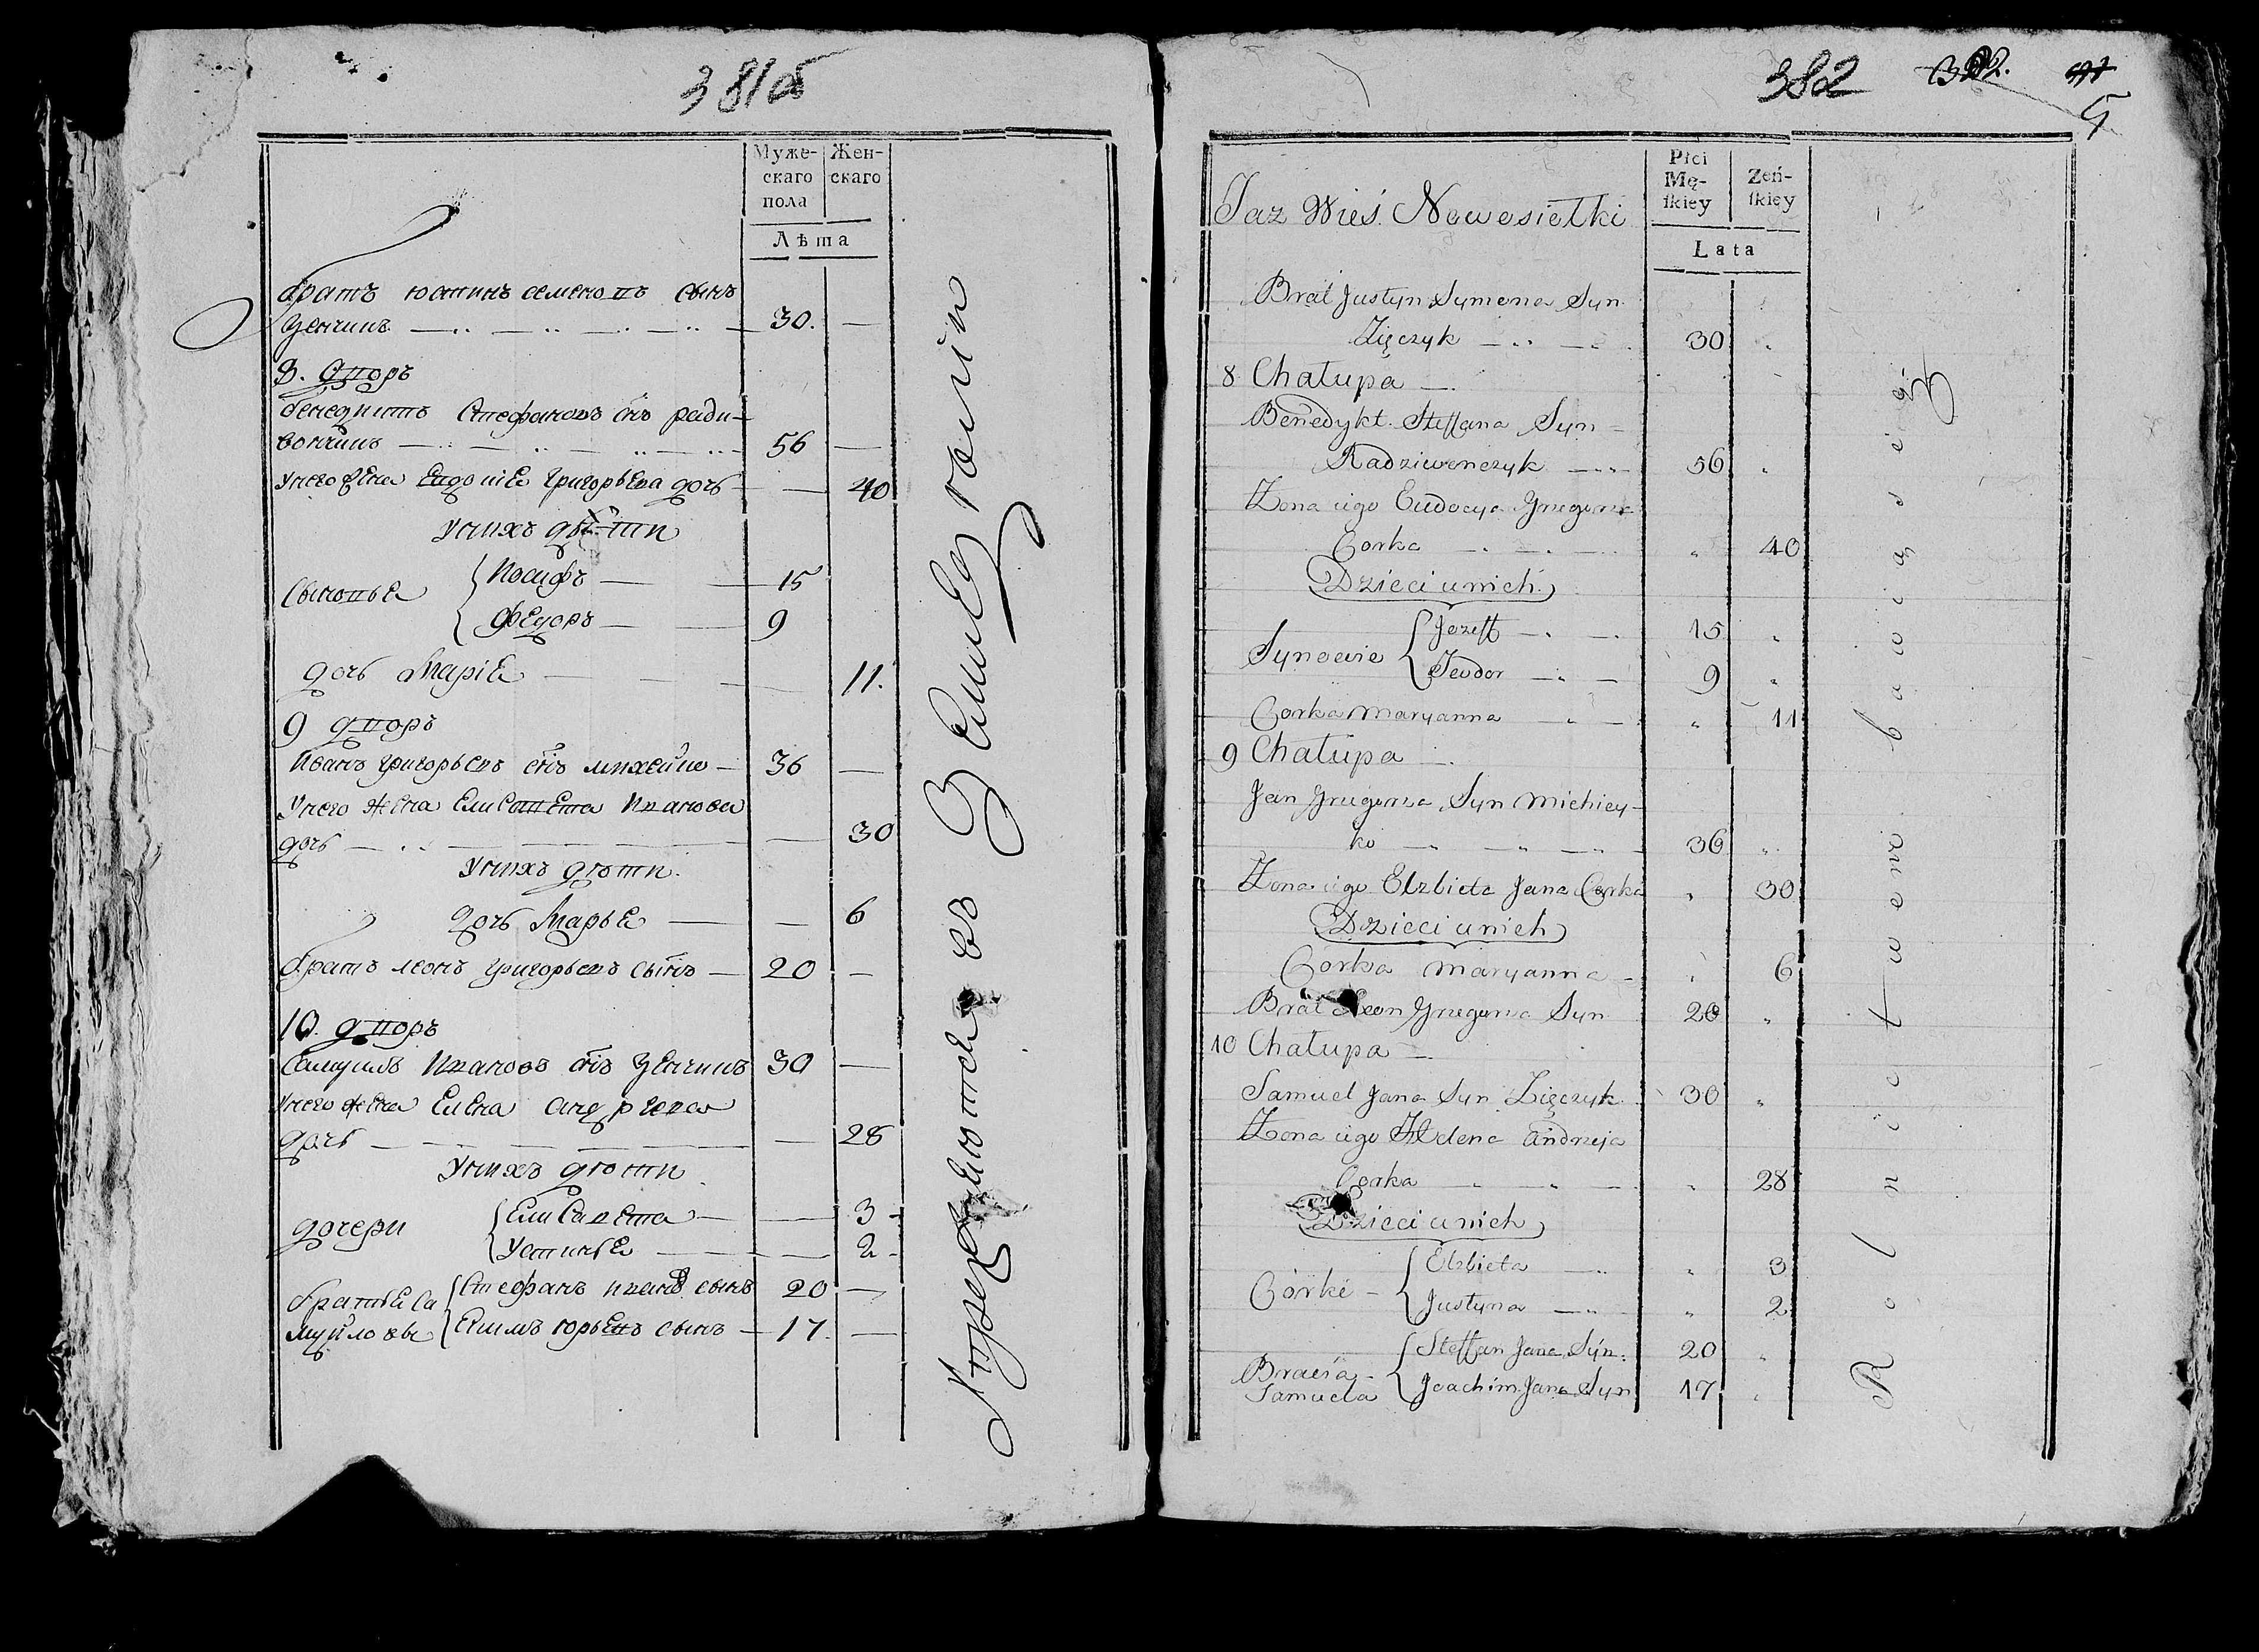 381об
Муже-
скаго
пола
Жен-
скаго
Лѣта
братъ юстинъ семеновъ сынъ
Зенчикъ 30.
8. дворъ
бенедиктъ Стефановъ снъ ради-
вончикъ 56
Унего жена Евдокіа григорьева дочь 40
Унихъ дѣти
Сыновьа
Иосифъ 15
Федоръ 9
дочь Маріа 11.
9 дворъ
Иванъ григорьевъ снъ михейко 36
Унего жена Елисавета Иванова
дочь 30
Унихъ дѣти
дочь Марьа 6
братъ леонъ григорьевъ сынъ 20
10. дворъ
Самуилъ Ивановъ снъ Зенчикъ 30
Унего жена Елена андреева
дочь 28
Унихъ дѣти
дочери
Елисавета 3
Устиньа 2
братьа Са
муйловы
Стефанъ иванов сынъ 20
Екимъ юрьевъ сынъ 17.
Упражняются въ Земледѣліи
382
5
Płci
Mę-
ſkiey
Żeń-
ſkiey
Lata
Taż Wieś Nowosiełki
Brat Justyn Symona Syn
Zięczyk 30
8 Chałupa
Benedykt Steffana Syn
Radziwonczyk 56
Zona iego Eudocya Grzegorza
Corka 40
Dzieci unich
Synowie
Jozeff 15
Teodor 9
Corka Maryanna 11
9 Chałupa
Jan Grzegorza Syn Michiey-
ko 36
Zona iego Elzbieta Jana Corka 30
Dzieci unich
Corka Maryanna 6
Brat Leon Grzegorza Syn 20
10 Chałupa
Samuel Jana Syn Zięczyk 30
Zona iego Helena Andrzeja
Corka 28
Dzieci unich
Córki
Elzbieta 3
Justyna 2
Bracia
Samuela
Steffan Jana Syn 20
Joachim Jana Syn 17
Rolnictwem bawią się